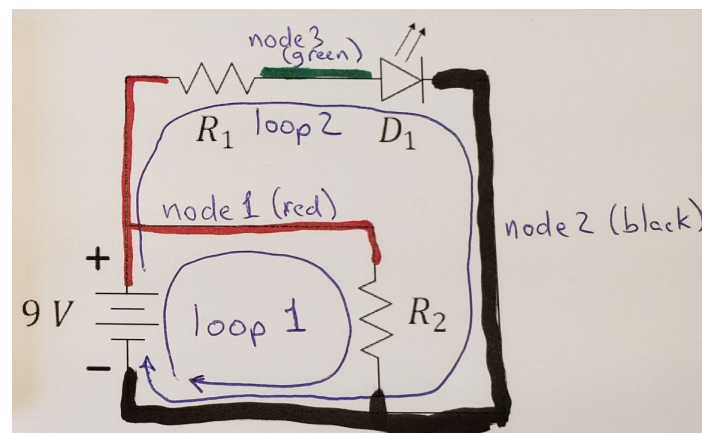 node3
(green)
R₁
loop2
D₁
node1 (red)
node2 (black)
+
9 V
loop 1
R₂
-